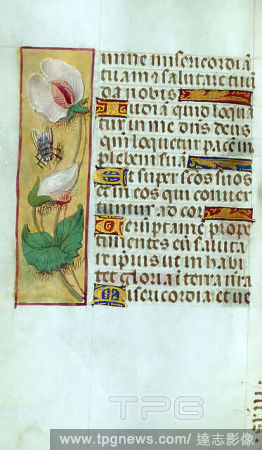 mine misericordiā
tuam et salutare tuū
da nobis
Audiā quid loqua
tur in me dn̄s deus
qm̄ loquetur pacē in
plebem suā
Et super sc̄os suos
et in eos qui conuer
tuntur ad cor
Veruptamē prope
timentes eū saluta
re ipsius ut inhabi
tet gloria i terra nr̄a
Misericordia et ue
TPG
www.tpgnews.com / 達志影像